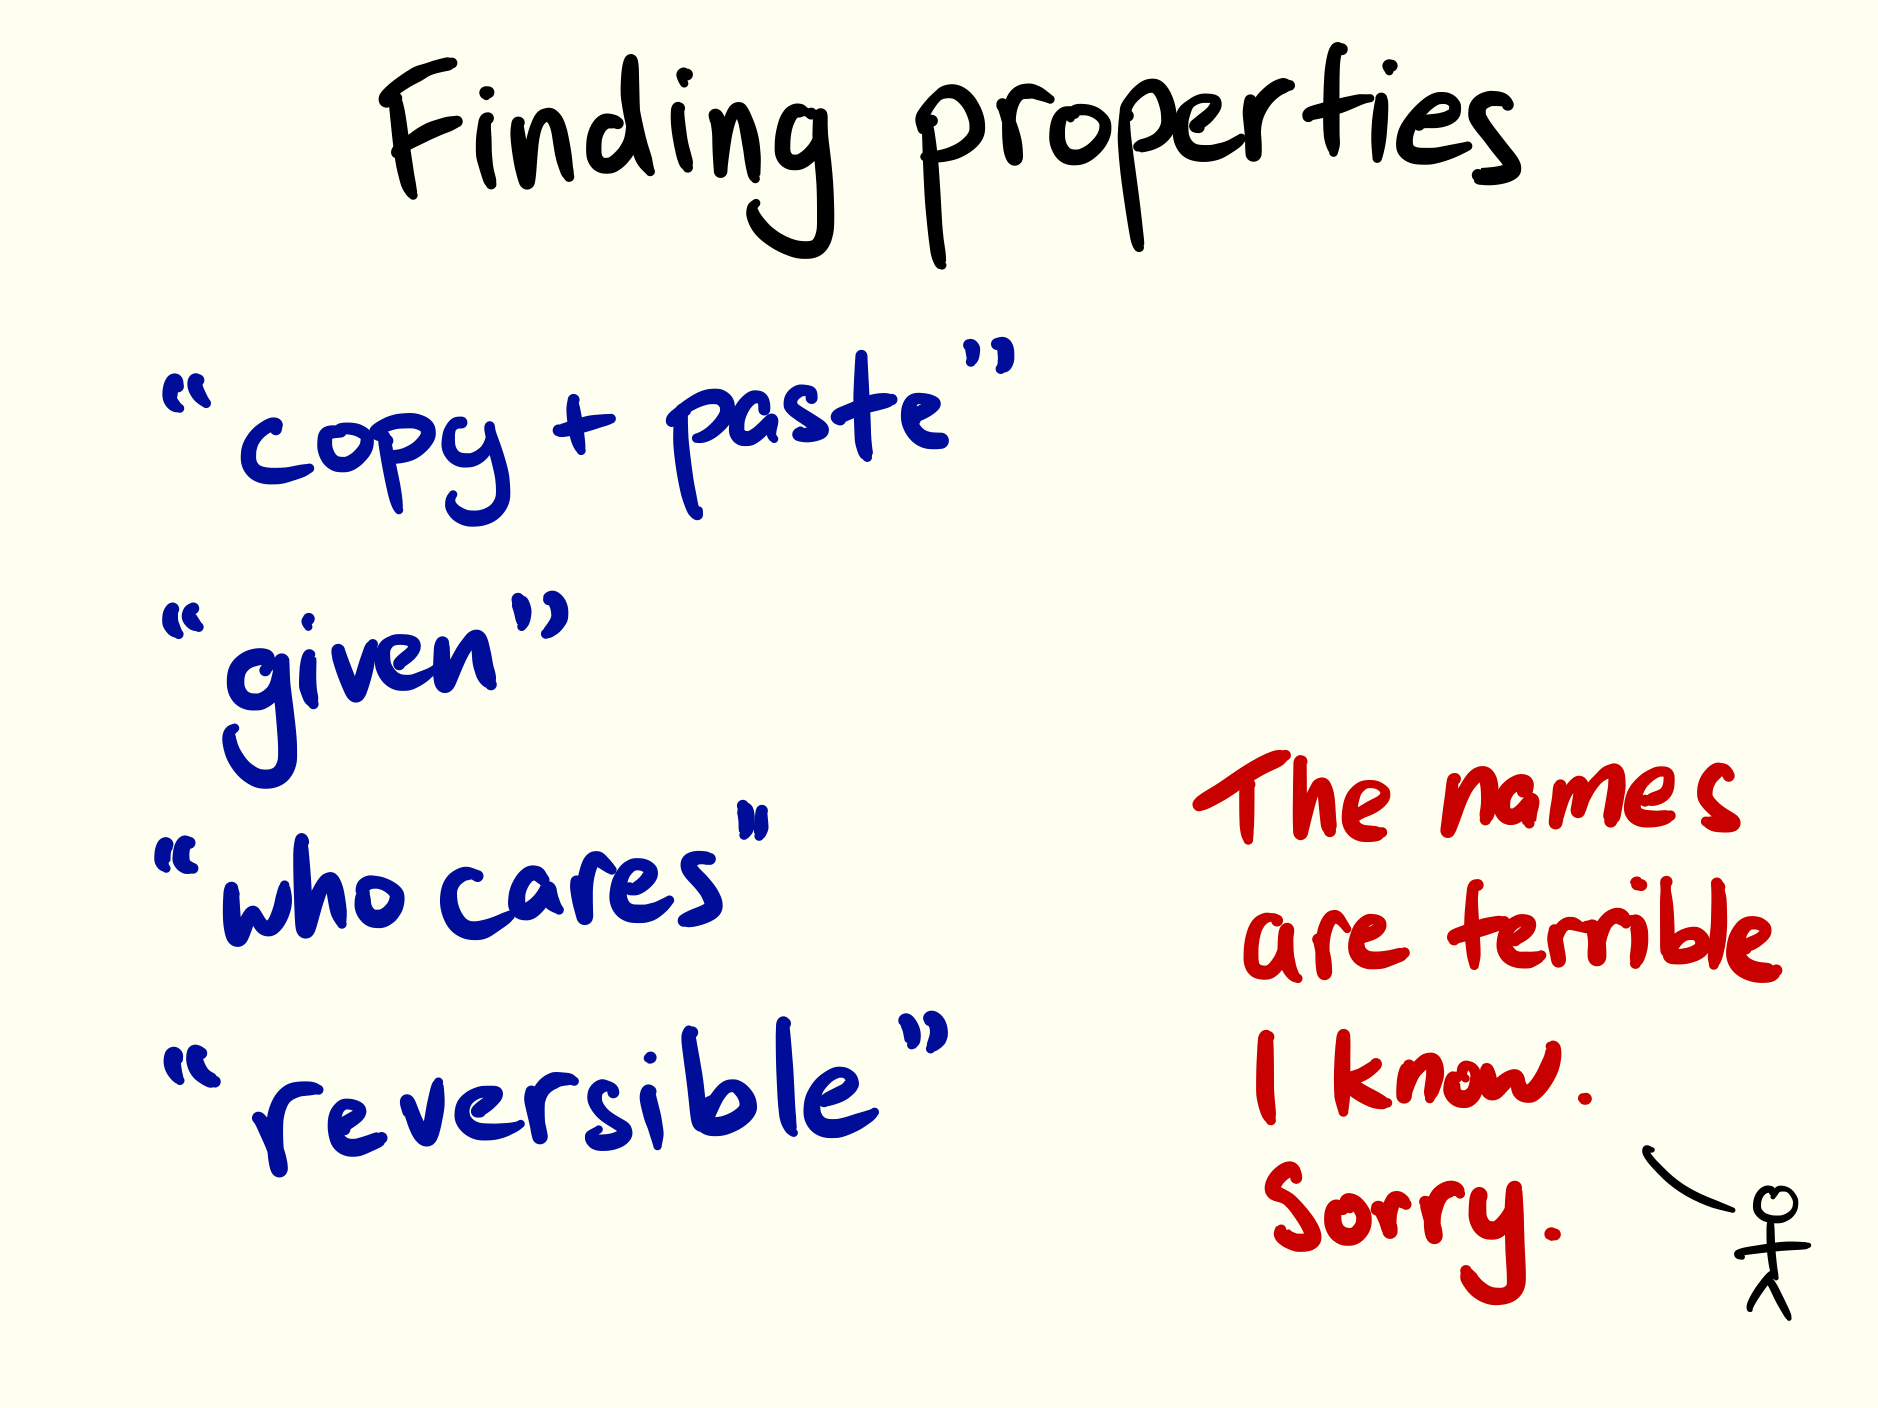 Finding properties
“copy + paste”
“given”
“who cares"
“reversible”
The names
are terrible
I know.
Sorry.